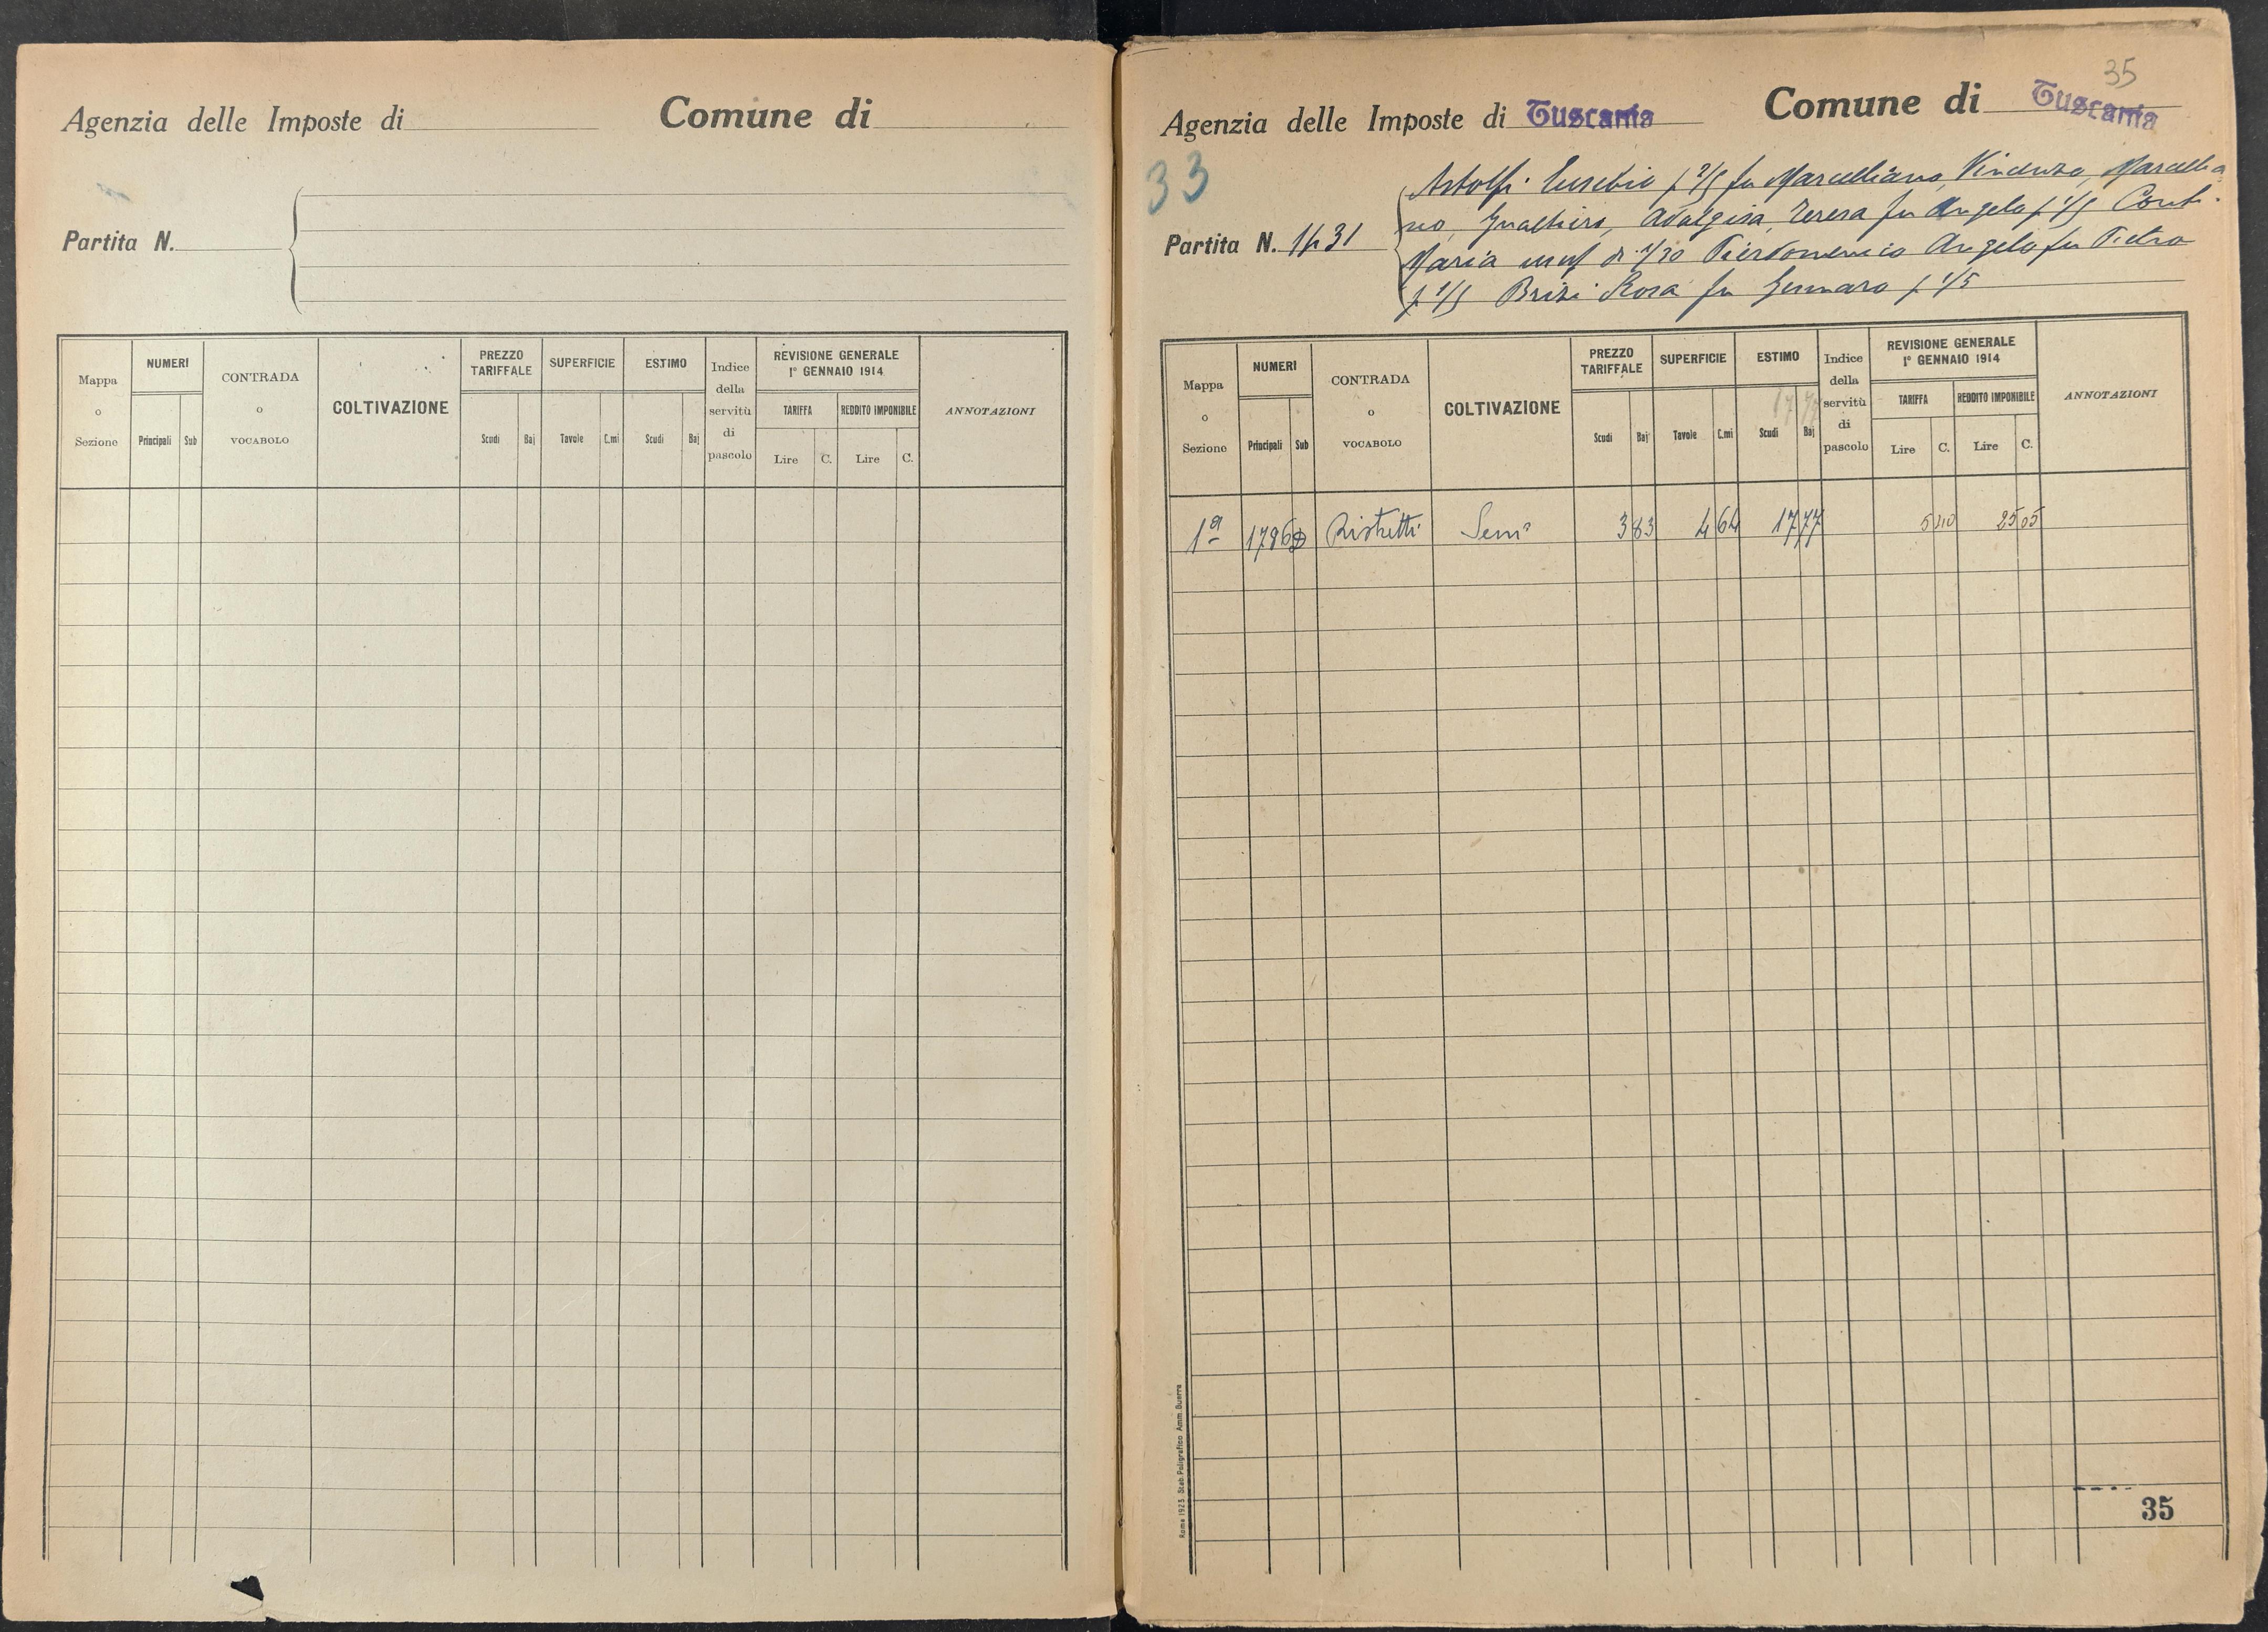 Agenzia delle Imposte di Comune di
Partita N.
Mappa o Sezione
NUMERI
Principali Sub
CONTRADA o VOCABOLO
COLTIVAZIONE
PREZZO TARIFFALE
Scudi Baj
SUPERFICIE
Tavole C.mi
ESTIMO
Scudi Baj
Indice della servitù di pascolo
REVISIONE GENERALE
1° GENNAIO 1914
TARIFFA
Lire C.
REDDITO IMPONIBILE
Lire C.
ANNOTAZIONI
35
Agenzia delle Imposte di Tuscania Comune di Tuscania
33
Astolfi Eusebio p 2/5 fu Marcelliano, Vincenzo, Marcellia
no, Gualtiero, Adalgisa, Teresa fu Angelo p 1/5 Conti
Partita N. 1431
Maria usuf di 1/30 Pierdomenico Angelo fu Pietro
p 1/5 Brizi Rosa fu Gennaro p 1/5
Mappa o Sezione
NUMERI
Principali Sub
CONTRADA o VOCABOLO
COLTIVAZIONE
PREZZO TARIFFALE
Scudi Baj
SUPERFICIE
Tavole C.mi
ESTIMO
17 77
Scudi Baj
Indice della servitù di pascolo
REVISIONE GENERALE
1° GENNAIO 1914
TARIFFA
Lire C.
REDDITO IMPONIBILE
Lire C.
ANNOTAZIONI
1ª 1796 Ristretti Sem° 3 83 4 64 17 77 5 40 25 05
Roma 1923. Stab. Poligrafico Amm. Guerra
35